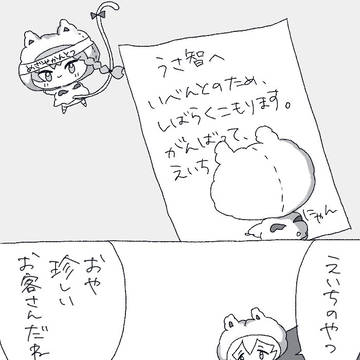 めざせかんとつ
うさ智へ
いべんとのため、
しばらくこもります。
がんばって、
えいち
にゃん
えいちのやつ
おや
珍しい
お客さんだね